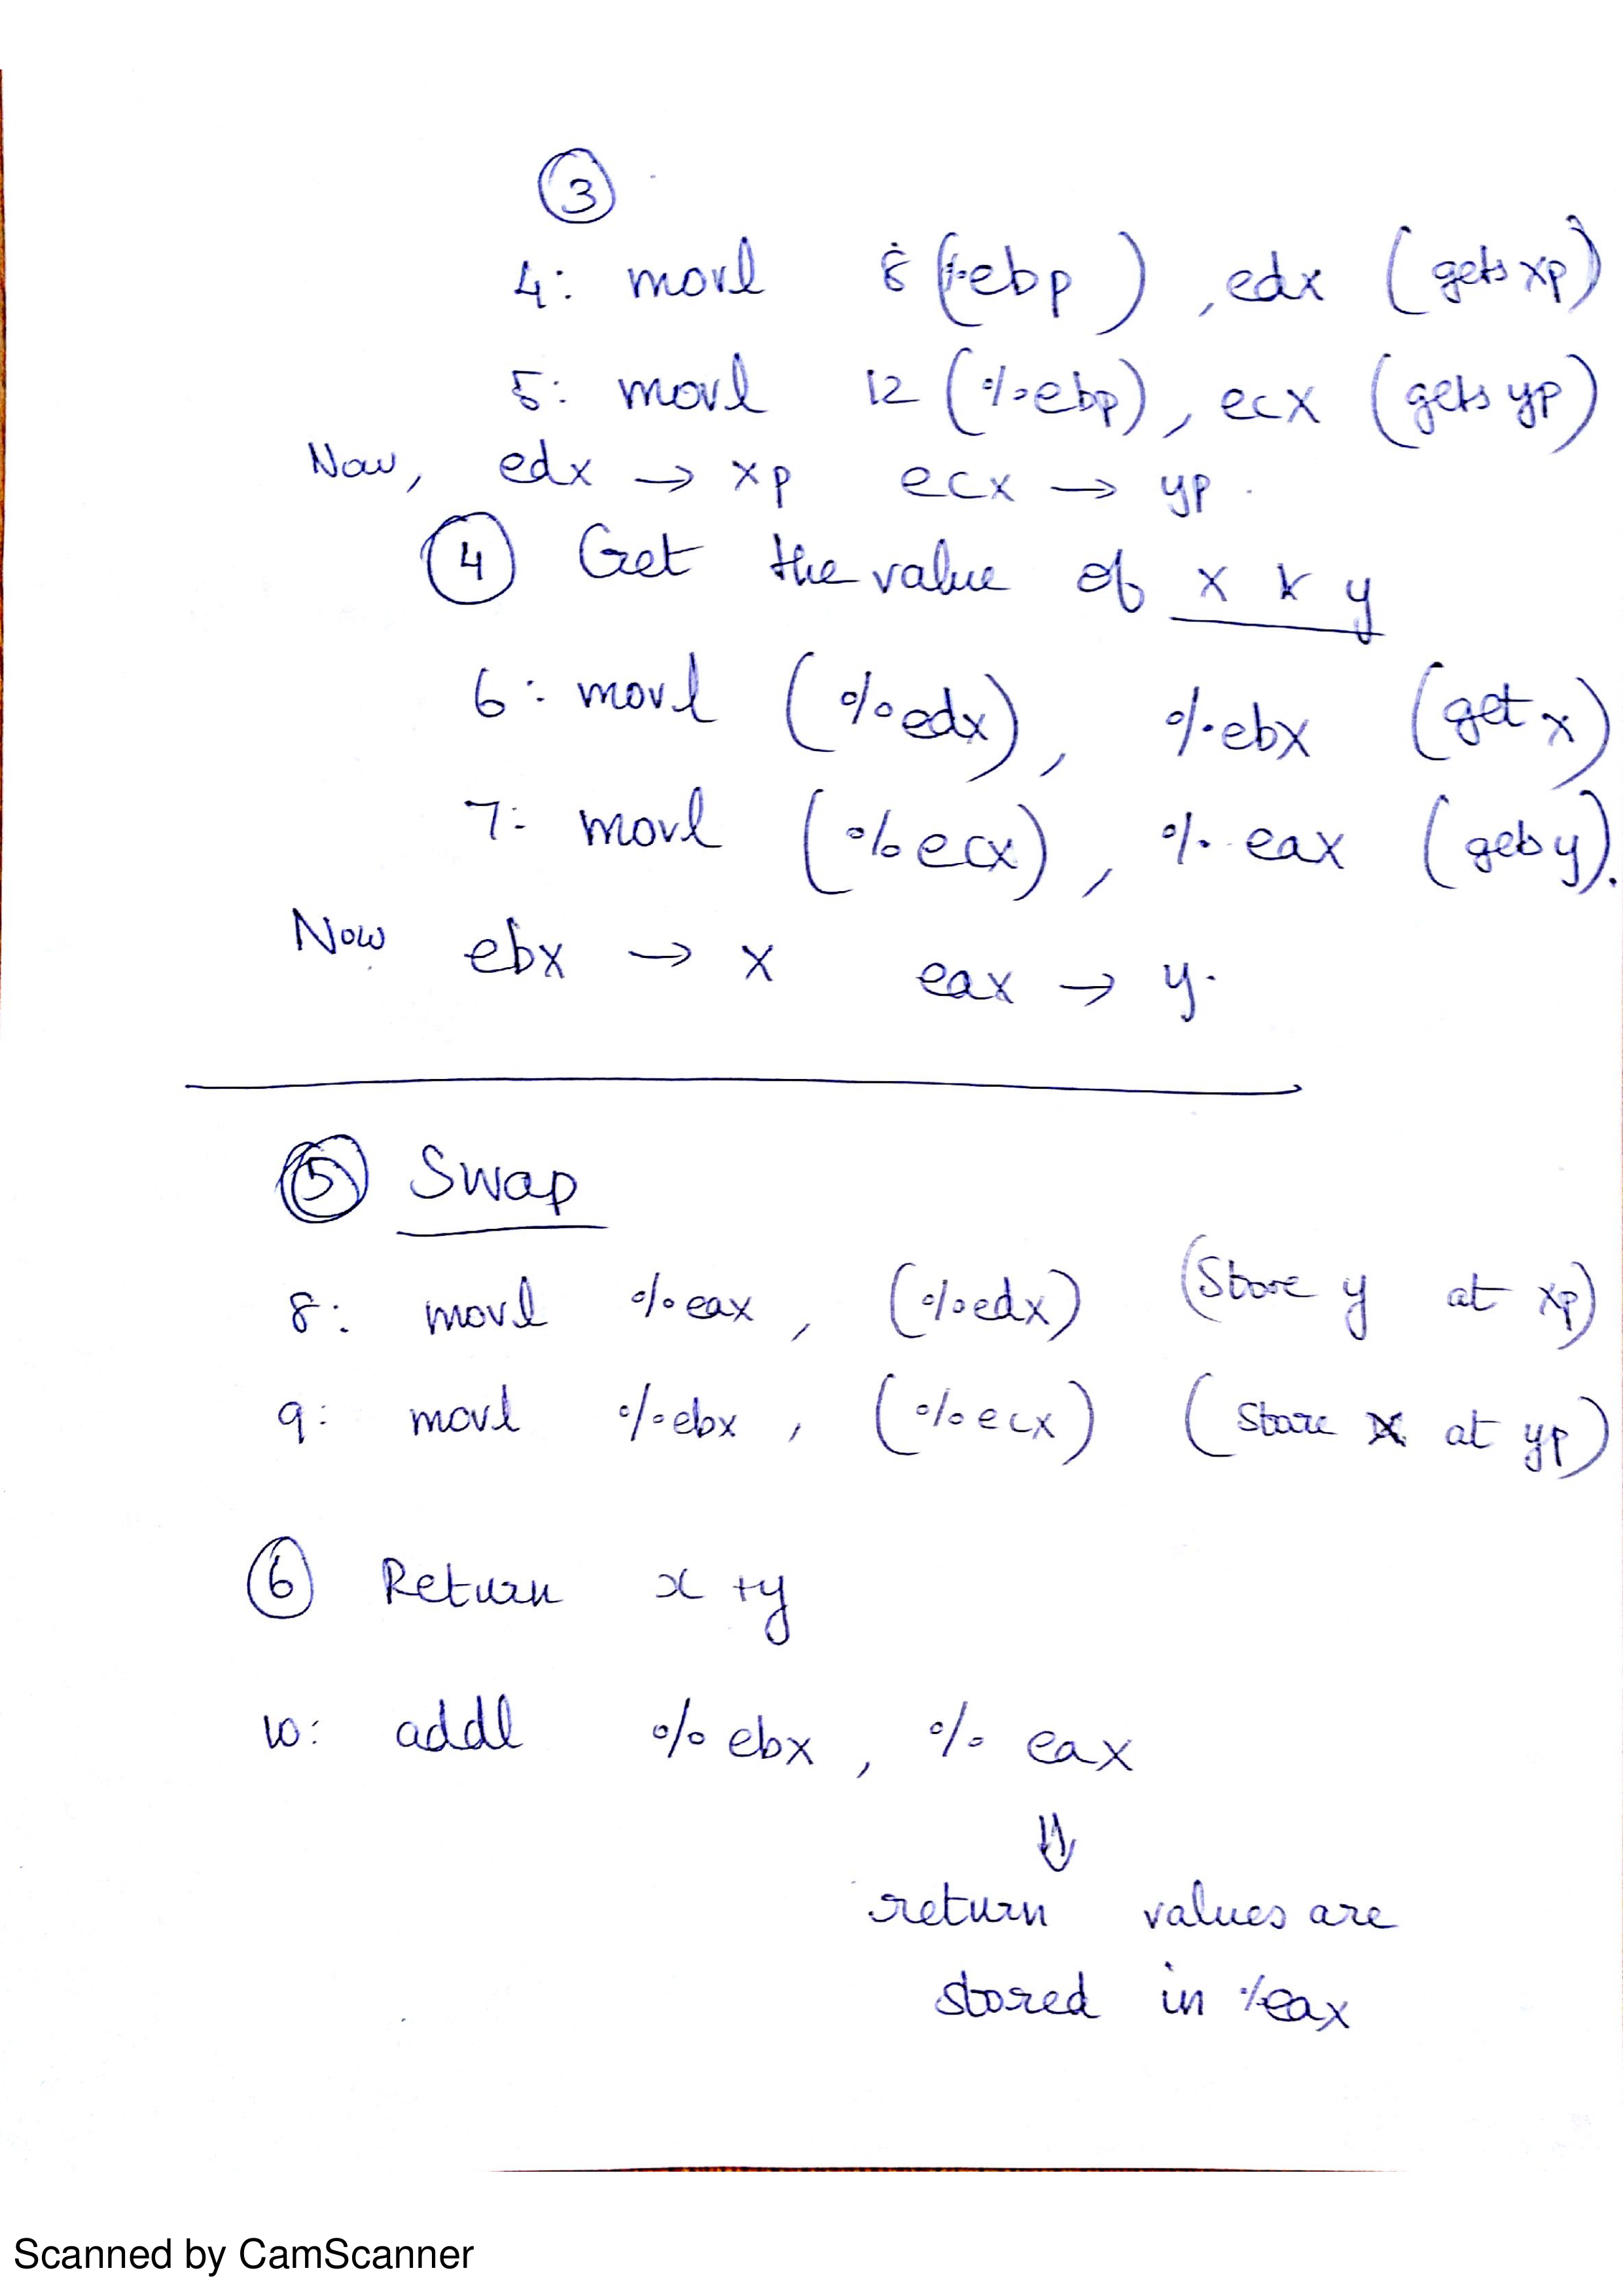 3
4: movl 8(%ebp), edx (gets xp)
5: movl 12 (%ebp), ecx (gets yp)
Now, edx → xp ecx → yp.
4 Get the value of x & y
6: movl (%edx), %ebx (get x)
7: movl (%ecx), %eax (gets y).
Now ebx → x eax → y.
5 Swap
8: movl %eax, (%edx) (Store y at xp)
9: movl %ebx, (%ecx) (Store x at yp)
6 Return x+y
10: addl %ebx, %eax
⇓
return values are
stored in %eax
Scanned by CamScanner